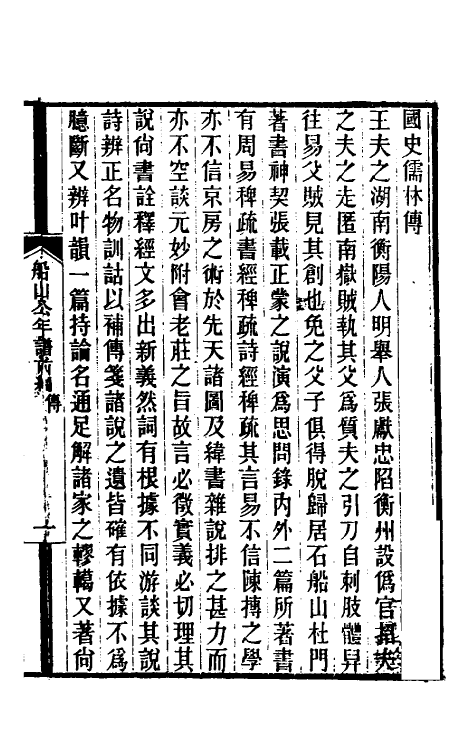 國史儒林傳
王夫之湖南衡陽人明舉人張獻忠陷衡州設僞官招夫
之夫之走匿南嶽賊執其父爲質夫之引刀自刺肢體舁
往易父賊見其創也免之父子俱得脫歸居石船山杜門
著書神契張載正蒙之說演爲思問錄內外二篇所著書
有周易稗疏書經稗疏詩經稗疏其言易不信陳摶之學
亦不信京房之術於先天諸圖及緯書雜說排之甚力而
亦不空談元妙附會老莊之旨故言必徵實義必切理其
說尙書詮釋經文多出新義然詞有根據不同游談其說
詩辨正名物訓詁以補傳箋諸說之遺皆確有依據不爲
臆斷又辨叶韻一篇持論名通足解諸家之轇轕又著尙
船山公年譜前編 傳 一